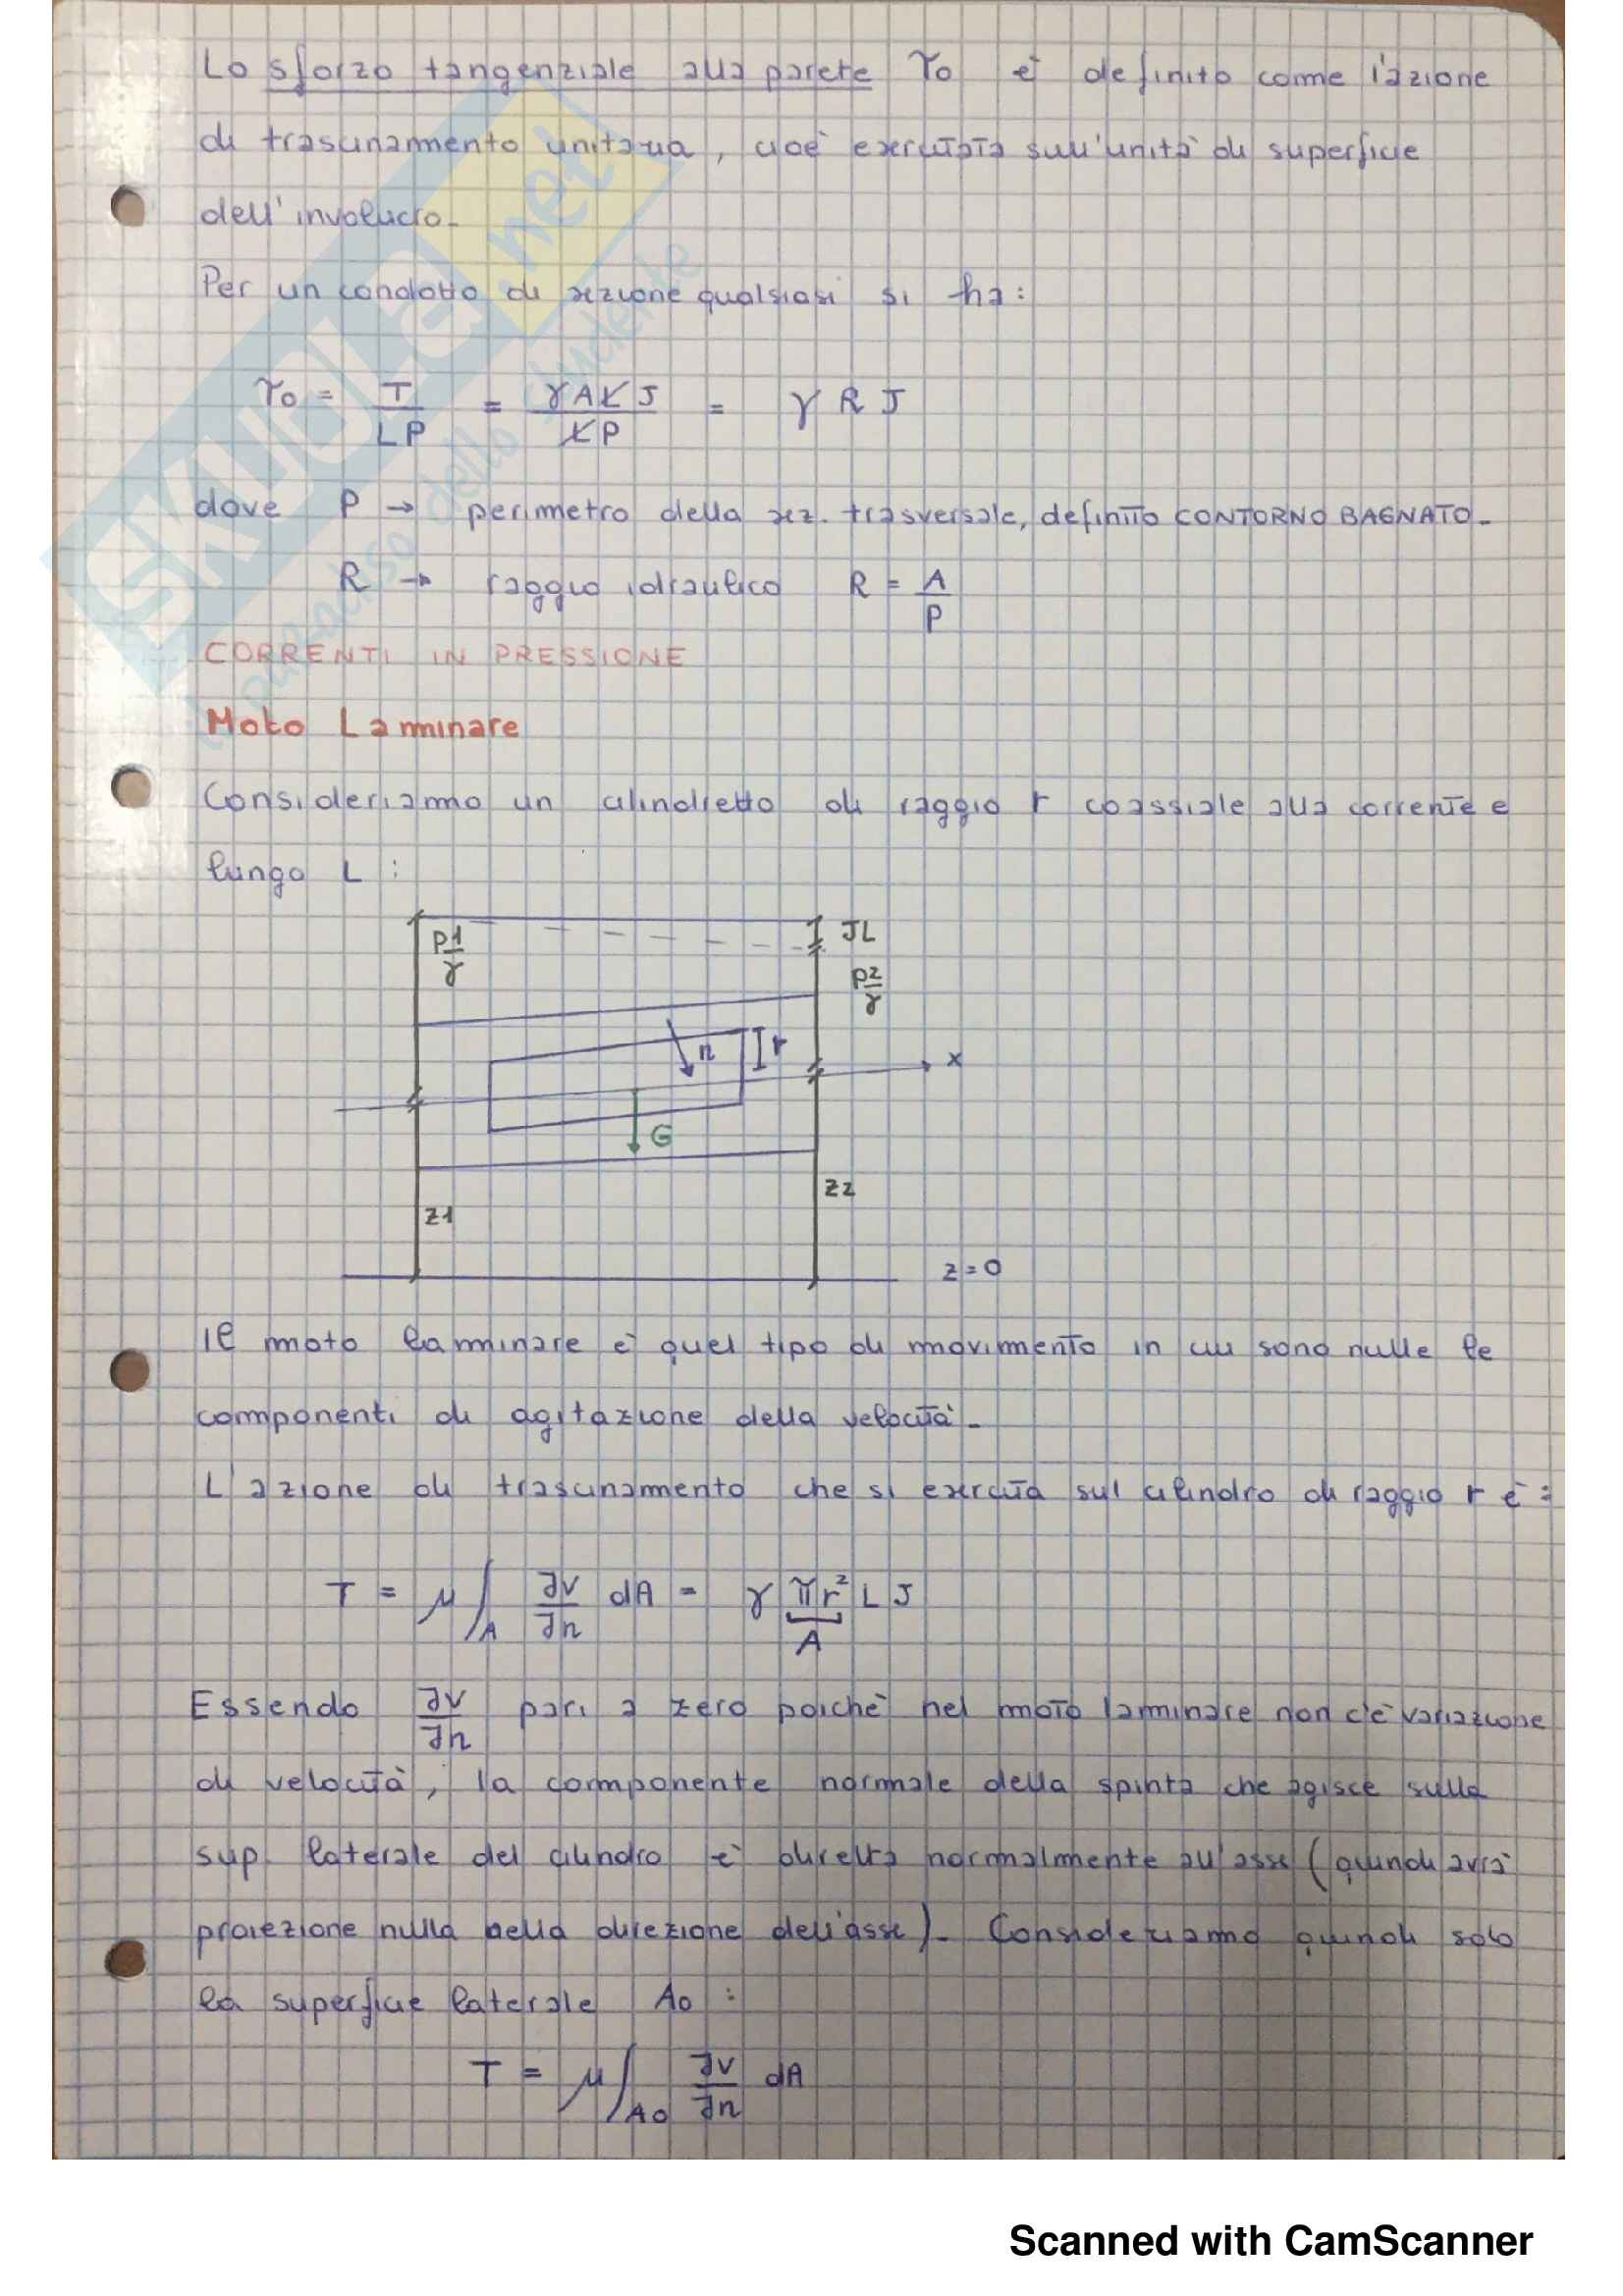 Lo sforzo tangenziale alla parete τo è definito come l'azione
di trascinamento unitaria, cioè esercitata sull'unità di superficie
dell'involucro.
Per un condotto di sezione qualsiasi si ha:
τo = T/LP = γALJ/LP = γRJ
dove P → perimetro della sez. trasversale, definito CONTORNO BAGNATO.
R → raggio idraulico R = A/P
CORRENTI IN PRESSIONE
Moto Laminare
Consideriamo un cilindretto di raggio r coassiale alla corrente e
lungo L :
P1/γ
JL
P2/γ
n
r
x
G
z1
z2
z=0
Il moto laminare è quel tipo di movimento in cui sono nulle le
componenti di agitazione della velocità.
L'azione di trascinamento che si esercita sul cilindro di raggio r è :
T = μ∫A ∂v/∂n dA = γ πr² L J
A
Essendo ∂v/∂n pari a zero poichè nel moto laminare non c'è variazione
di velocità, la componente normale della spinta che agisce sulla
sup. laterale del cilindro è diretta normalmente all'asse (quindi avrà
proiezione nulla nella direzione dell'asse). Consideriamo quindi solo
la superficie laterale Ao :
T = μ∫Ao ∂v/∂n dA
SKUOLA.net
il paradiso dello studente
Scanned with CamScanner